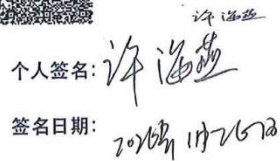 许海燕
个人签名：许海燕
签名日期：2026年1月26日